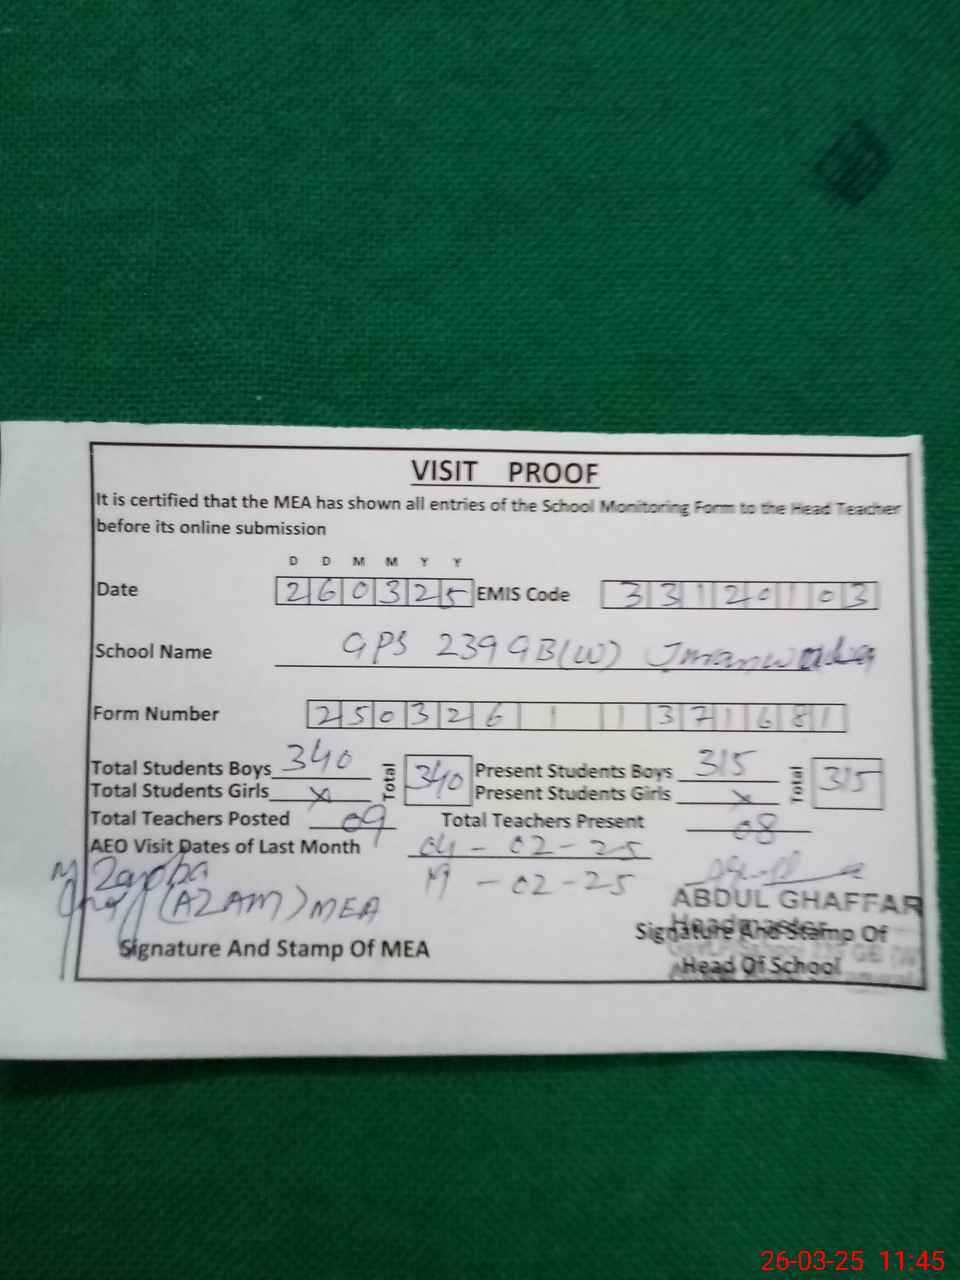 VISIT PROOF
It is certified that the MEA has shown all entries of the School Monitoring Form to the Head Teacher
before its online submission
D D M M Y Y
Date 260325 EMIS Code 33120103
School Name GPS 239 GB(W)
Form Number 250326 1 1371681
Total Students Boys 340 Total 340 Present Students Boys 315 Total 315
Total Students Girls x Present Students Girls x
Total Teachers Posted 09 Total Teachers Present 08
AEO Visit Dates of Last Month 04-02-25
19-02-25
(AZAM) MEA
ABDUL GHAFFAR
Headmaster
Signature And Stamp Of MEA
Signature And Stamp Of
Head Of School
26-03-25 11:45